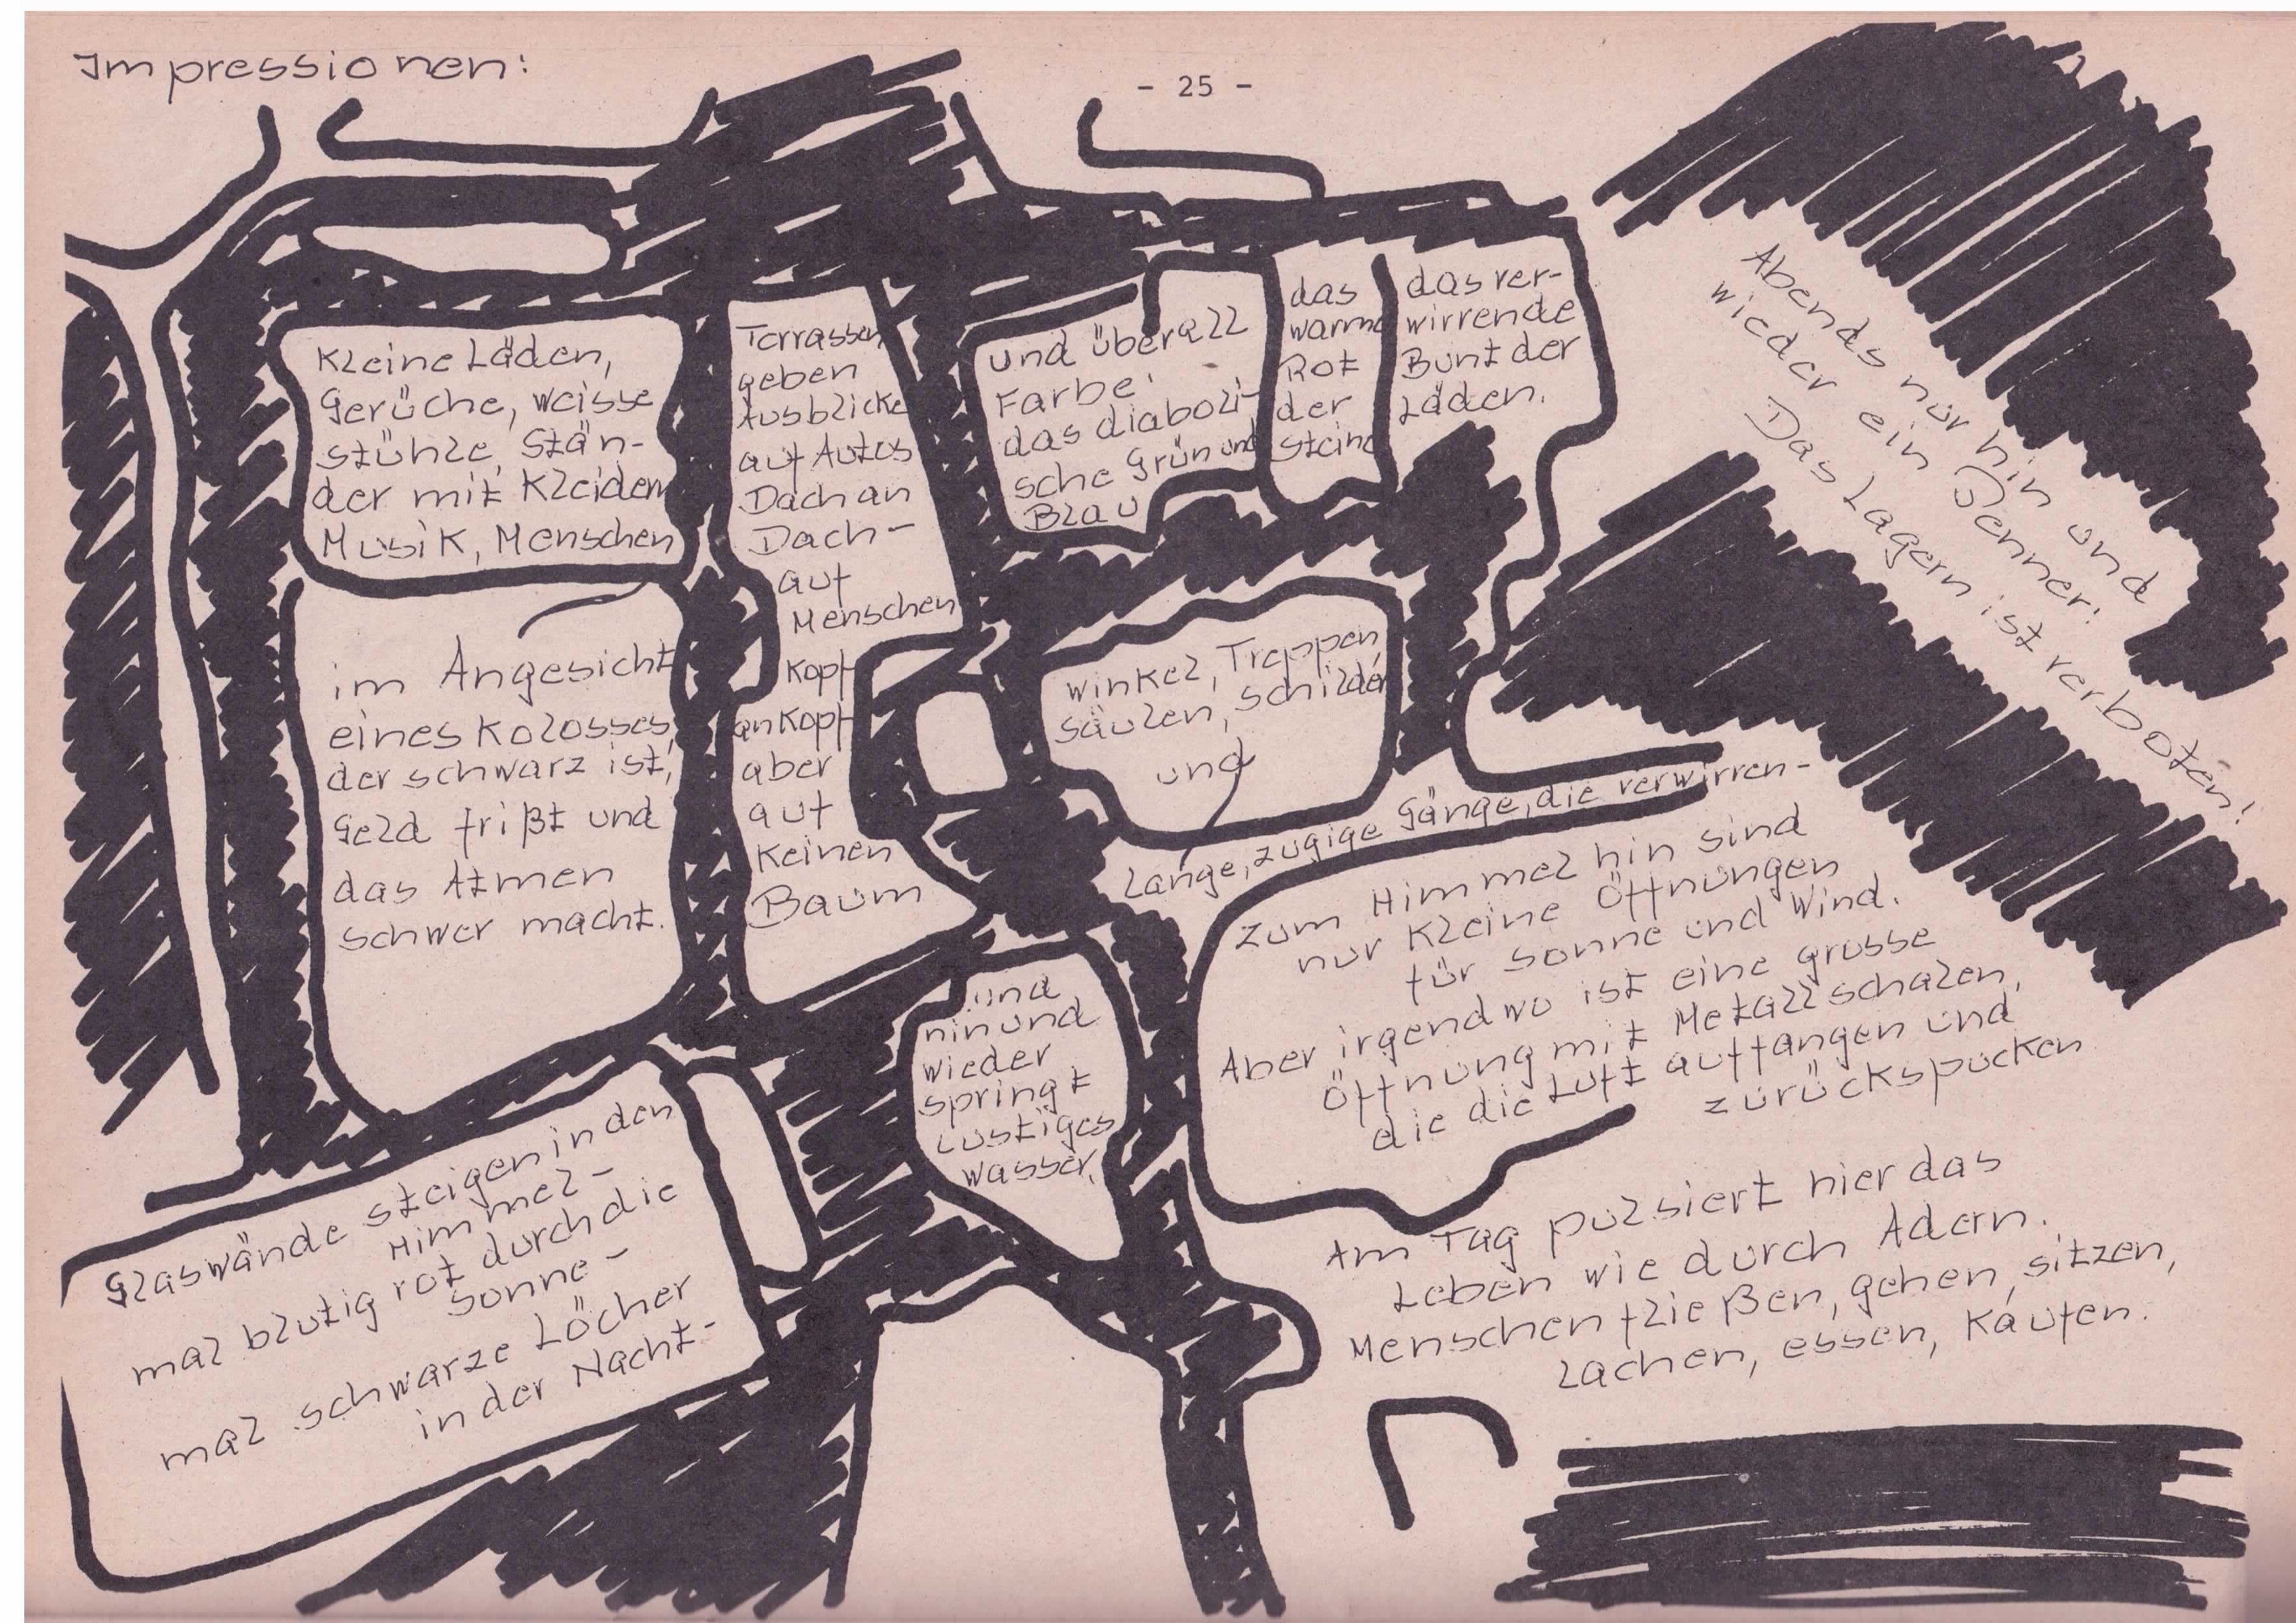 Impressionen:
- 25 -
Kleine Läden,
Gerüche, weisse
Stühle, Stän-
der mit Kleidern
Musik, Menschen
im Angesicht
eines Kolosses,
der schwarz ist,
Geld frißt und
das Atmen
schwer macht.
Terrassen
geben
Ausblicke
auf Autos
Dach an
Dach-
auf
Menschen
Kopf
an Kopf
aber
auf
Keinen
Baum
und überall
Farbe:
das diaboli-
sche Grün und
Blau
das
warme
Rot
der
Steine
das ver-
wirrende
Bunt der
Läden.
Winkel, Treppen,
Säulen, Schilder
und
Lange, zugige Gänge, die verwirren-
Zum Himmel hin sind
nur Kleine Öffnungen
für Sonne und Wind.
Aber irgendwo ist eine grosse
Öffnung mit Metallschalen,
die die Luft auffangen und
zurückspucken
und
hin und
wieder
springt
lustiges
Wasser.
Glaswände steigen in den
Himmel-
mal blutig rot durch die
Sonne-
mal schwarze Löcher
in der Nacht-
Am Tag pulsiert hier das
Leben wie durch Adern.
Menschen fließen, gehen, sitzen,
lachen, essen, Kaufen.
Abends nur hin und
wieder ein Penner:
Das Lagern ist verboten!